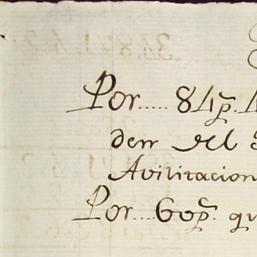 Por..... 84p. 4
den del
Avilitacion
Por....60p. qu